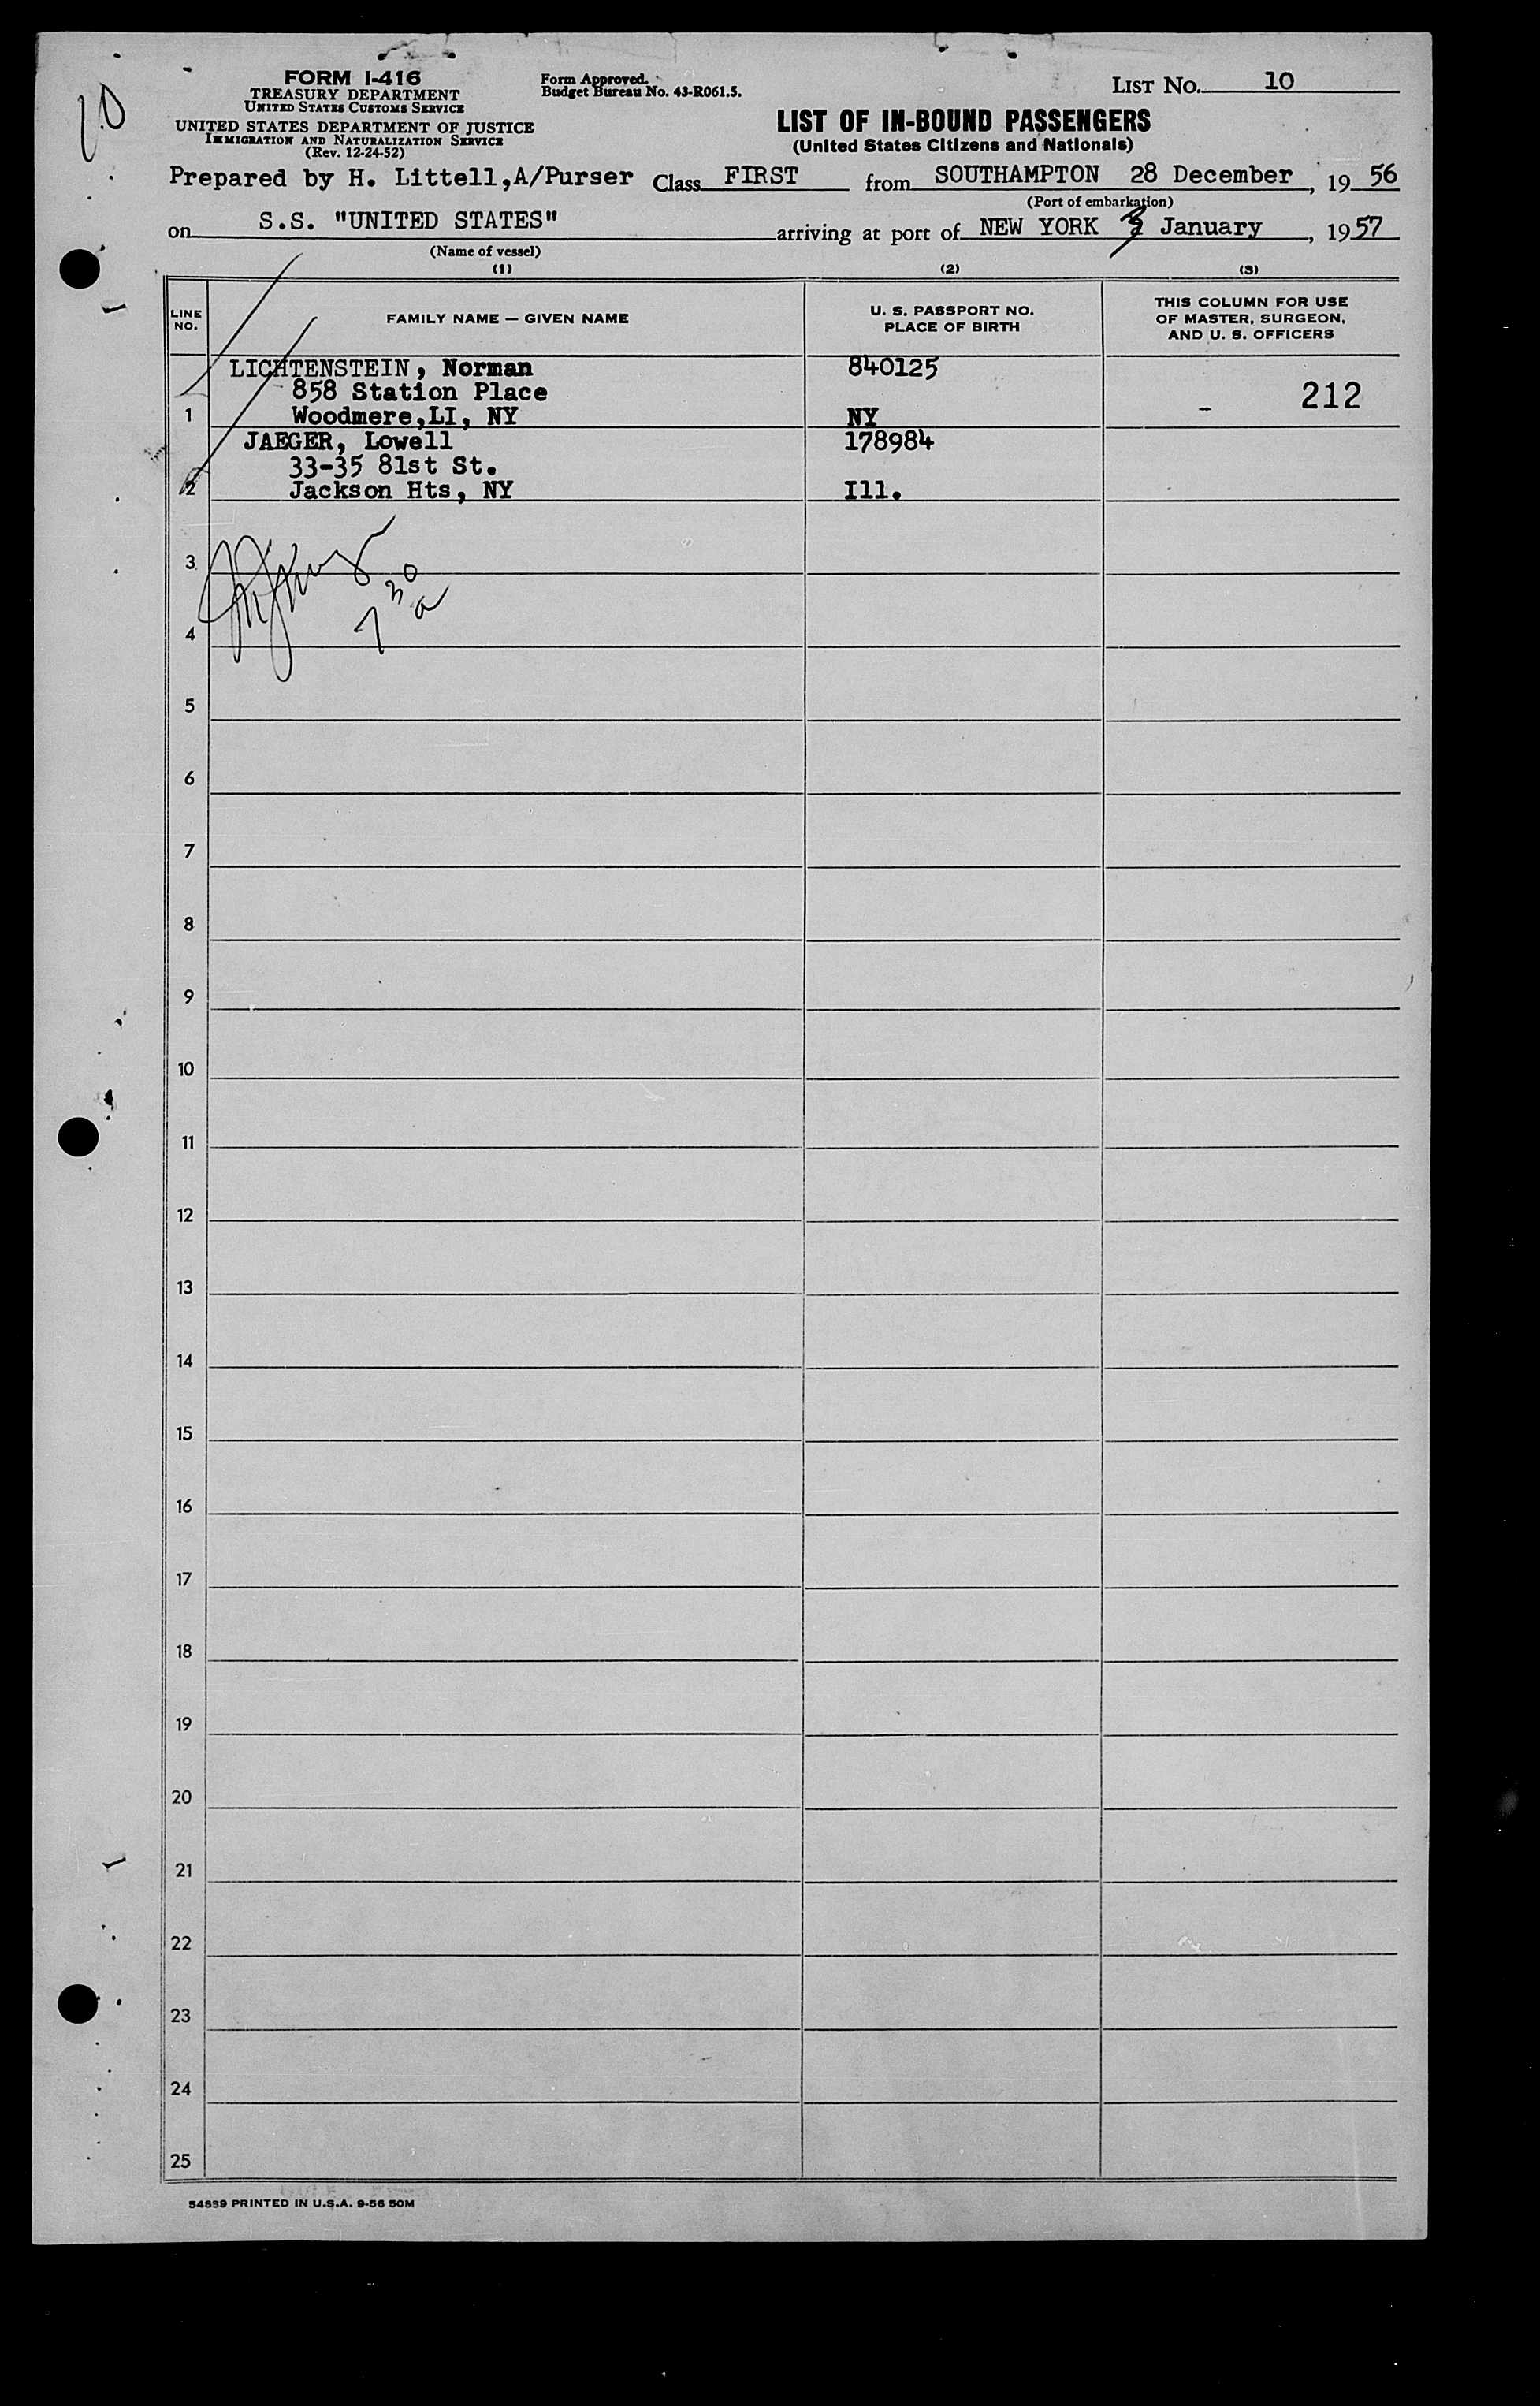 10
FORM I-416
TREASURY DEPARTMENT
UNITED STATES CUSTOMS SERVICE
UNITED STATES DEPARTMENT OF JUSTICE
IMMIGRATION AND NATURALIZATION SERVICE
(Rev. 12-24-52)
Form Approved.
Budget Bureau No. 43-R061.5.
LIST No. 10
LIST OF IN-BOUND PASSENGERS
(United States Citizens and Nationals)
Prepared by H. Littell,A/Purser Class FIRST from SOUTHAMPTON 28 December, 1956
(Port of embarkation)
on S.S. "UNITED STATES" arriving at port of NEW YORK 3 January, 1957
(Name of vessel)
(1) (2) (3)
LINE NO. FAMILY NAME — GIVEN NAME U. S. PASSPORT NO. PLACE OF BIRTH THIS COLUMN FOR USE OF MASTER, SURGEON, AND U. S. OFFICERS
LICHTENSTEIN, Norman 840125
858 Station Place - 212
1 Woodmere,LI, NY NY
JAEGER, Lowell 178984
33-35 81st St.
2 Jackson Hts, NY Ill.
3
7 30 a
4
5
6
7
8
9
10
11
12
13
14
15
16
17
18
19
20
21
22
23
24
25
54889 PRINTED IN U.S.A. 9-56 50M